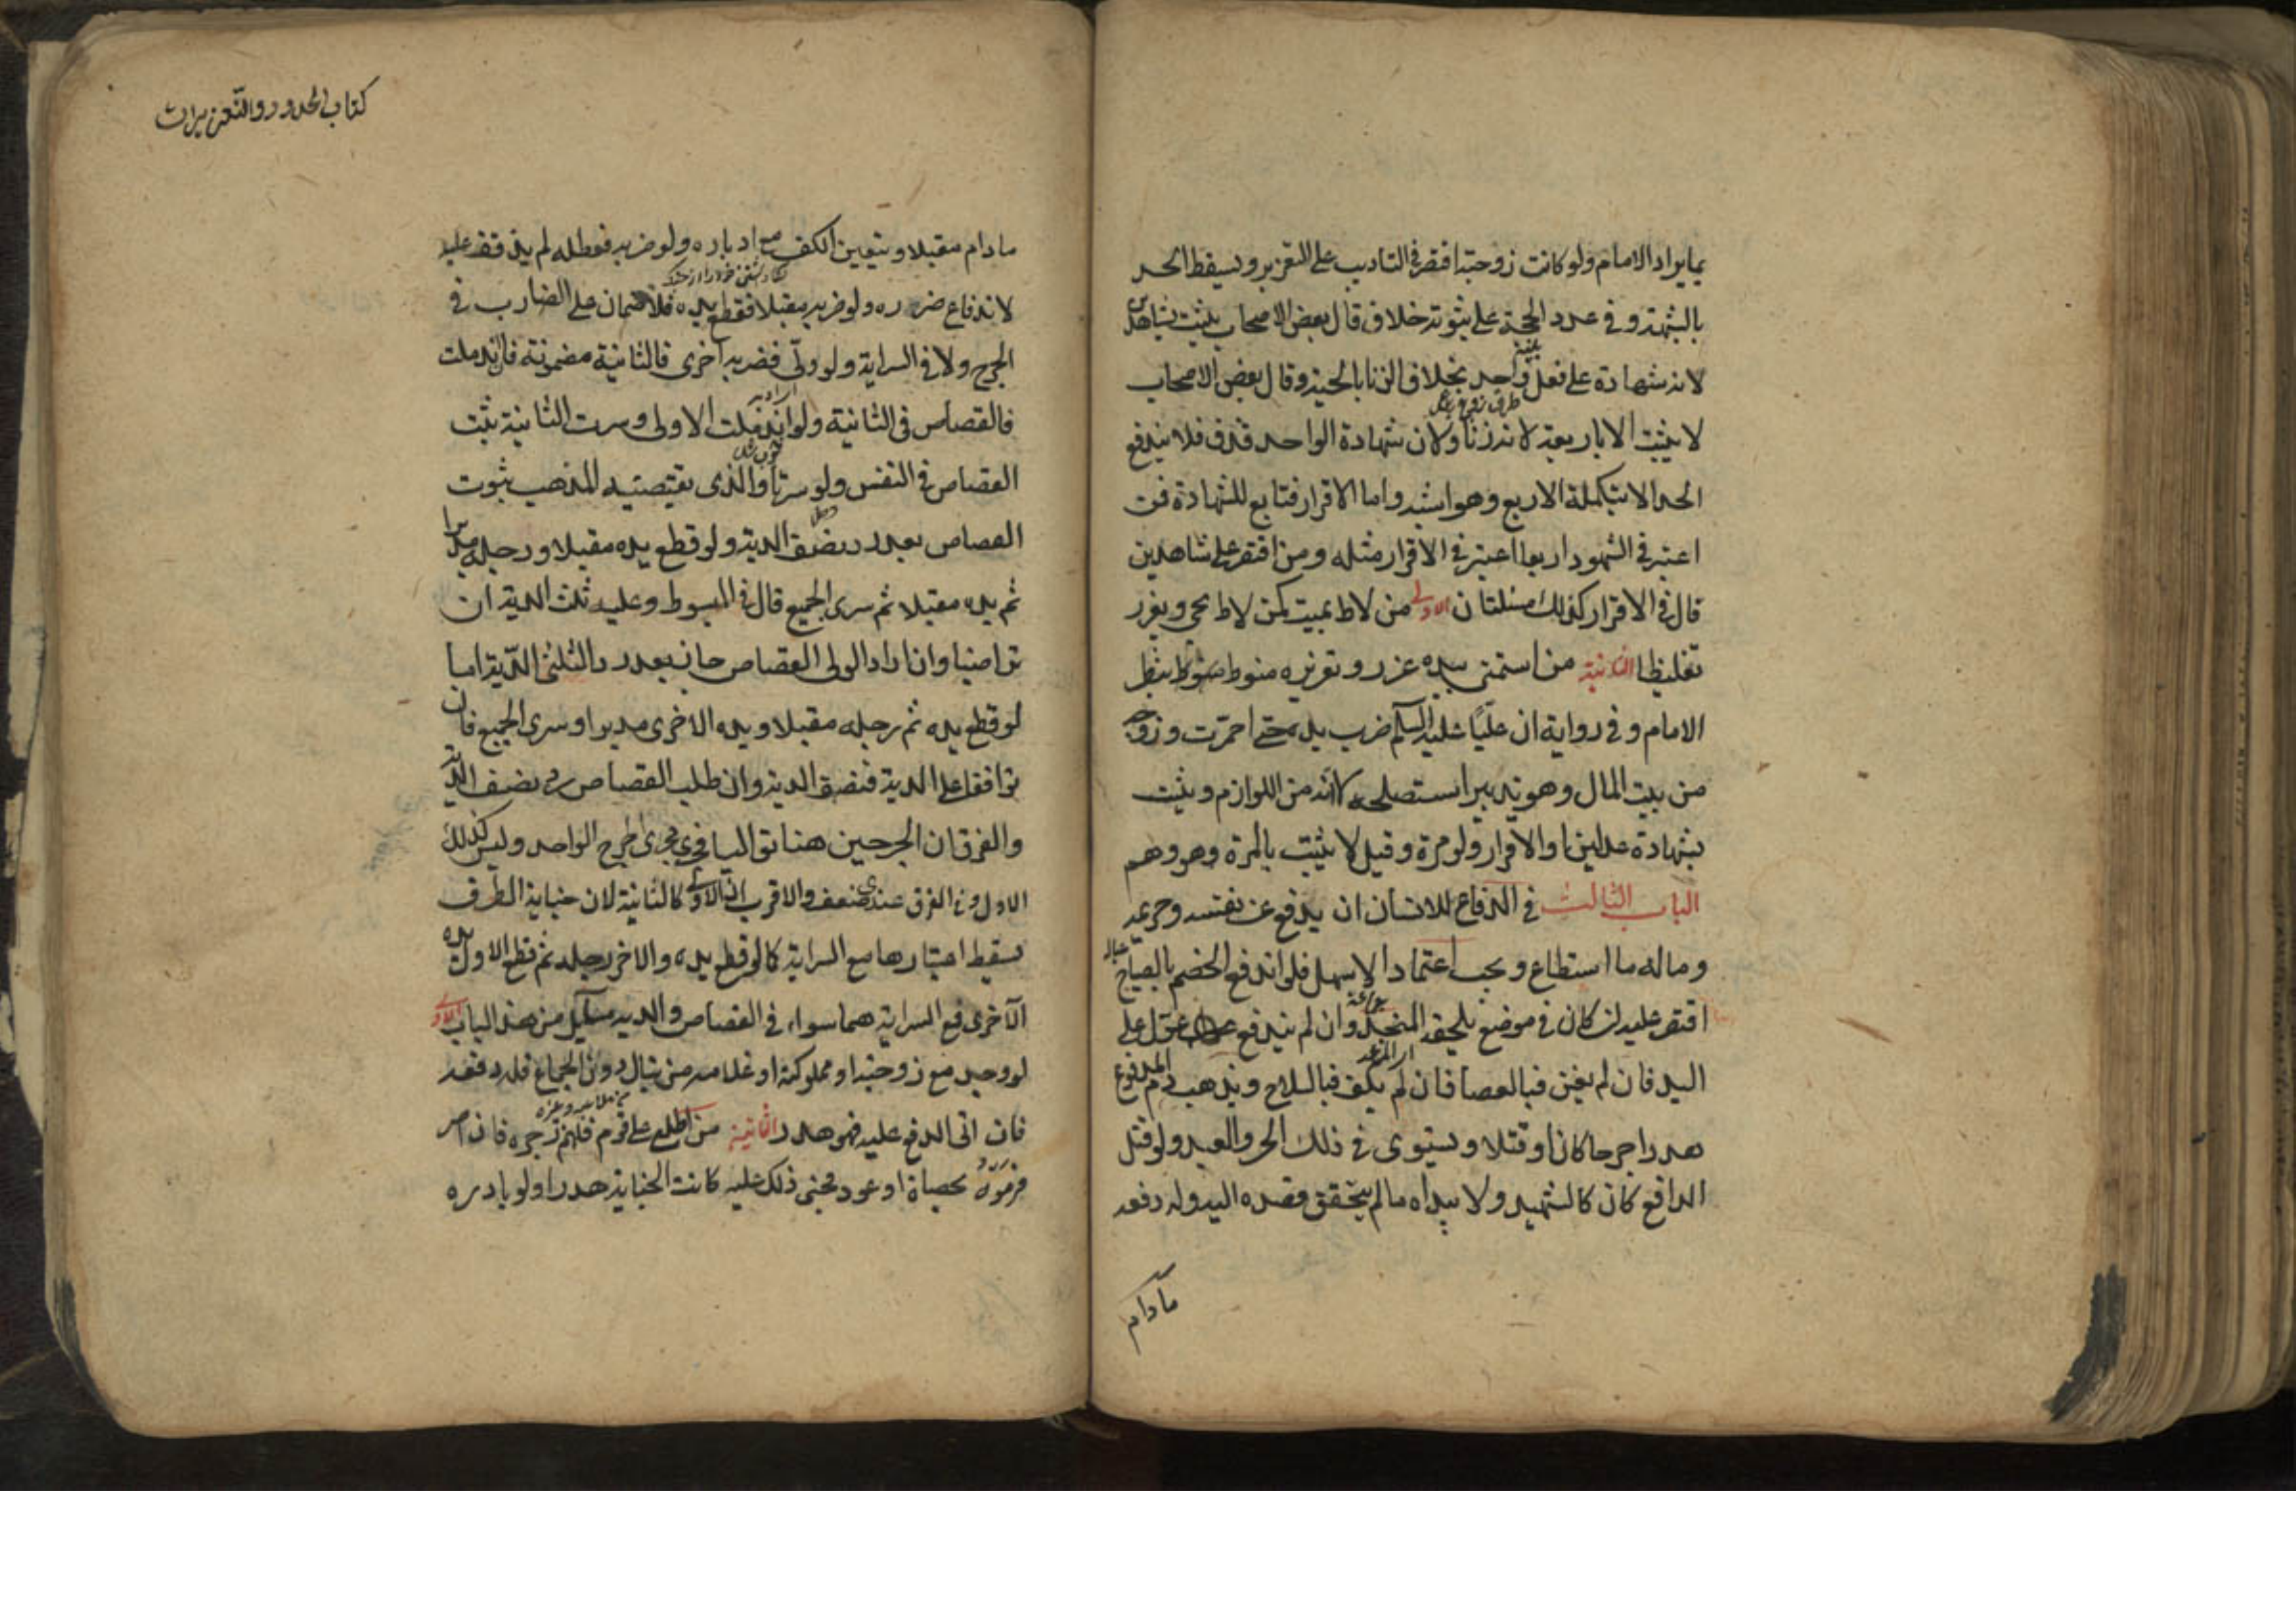 بما يراه الامام ولو كانت زوجته اقتصر في التاديب على التعزير ويسقط الحد
بالشبهة وفي عدد الحجة على ثبوته خلاف قال بعض الاصحاب يثبت بشاهدين
لانه شهادة على فعل واحد بخلاف الزنا بالحية وقال بعض الاصحاب
لا يثبت الا باربعة لانه زنا ولان شهادة الواحد قذف فلا يندفع
الحد الا بتكملة الاربع وهو اشبه واما الاقرار فتابع للشهادة فمن
اعتبر في الشهود اربعا اعتبر في الاقرار مثله ومن اقتصر على شاهدين
قال في الاقرار كذلك مسئلتان الاولى من لاط بميت كمن لاط بحي ويعزر
تغليظا الثانية من استمنى بيده عزر وتعزيره منوط بنظر
الامام وفي رواية ان عليا عليه السلم ضرب يده حتى احمرت وزوجه
من بيت المال وهو تدبير استصلحه لا انه من اللوازم ويثبت
بشهادة عدلين او الاقرار ولو مرة وقيل لا يثبت بالمرة وهو وهم
الباب الثالث في الدفاع للانسان ان يدفع عن نفسه وحريمه
وماله ما استطاع ويجب اعتماد الاسهل فلو اندفع الخصم بالصياح
اقتصر عليه ان كان في موضع يلحقه المنجد وان لم يندفع عول على
اليد فان لم يغن فبالعصا فان لم يكف فبالسلاح ويذهب دم المدفوع
هدرا جرحا كان او قتلا ويستوى في ذلك الحر والعبد ولو قتل
الدافع كان كالشهيد ولا يبداه ما لم يتحقق قصده اليه وله دفعه
مادام
كتاب الحدود والتعزيرات
مادام مقبلا ويتعين الكف مع ادباره ولو ضربه فعطله لم يذفف عليه
لاندفاع ضرره ولو ضربه مقبلا فقطع يده فلا ضمان على الضارب في
الجرح ولا في السراية ولو ولى فضربه اخرى فالثانية مضمونة فان اندملت
فالقصاص في الثانية ولو اندملت الاولى وسرت الثانية ثبت
القصاص في النفس ولو سرتا والذى يقتضيه المذهب ثبوت
القصاص بعد رد نصف الدية ولو قطع يده مقبلا ورجله مدبرا
ثم يده مقبلا ثم سرى الجميع قال في المبسوط وعليه ثلث الدية ان
تراضيا وان اراد الولى القصاص جاز بعد رد الثلثى الدية اما
لو قطع يده ثم رجله مقبلا ويده الاخرى مدبرا وسرى الجميع فان
توافقا على الدية فنصف الدية وان طلب القصاص رد نصف الدية
والفرق ان الجرحين هنا تواليا فجرى مجرى الجرح الواحد وليس كذلك
الاول وفي الفرق عندى ضعف والاقرب ان الاولى كالثانية لان جناية الطرف
يسقط اعتبارها مع السراية كما لو قطع يده والاخر رجله ثم قطع الاول يده
الاخرى فمع السراية هما سواء في القصاص والدية مسايل من هذا الباب الاولى
لو وجد مع زوجته او مملوكته او غلامه من ينال دون الجماع فله دفعه
فان اتى الدفع عليه فهو هدر الثانية من اطلع على قوم فلهم زجره فان اصر
فرموه بحصاة او عود فجنى ذلك عليه كانت الجناية هدرا ولو بادره